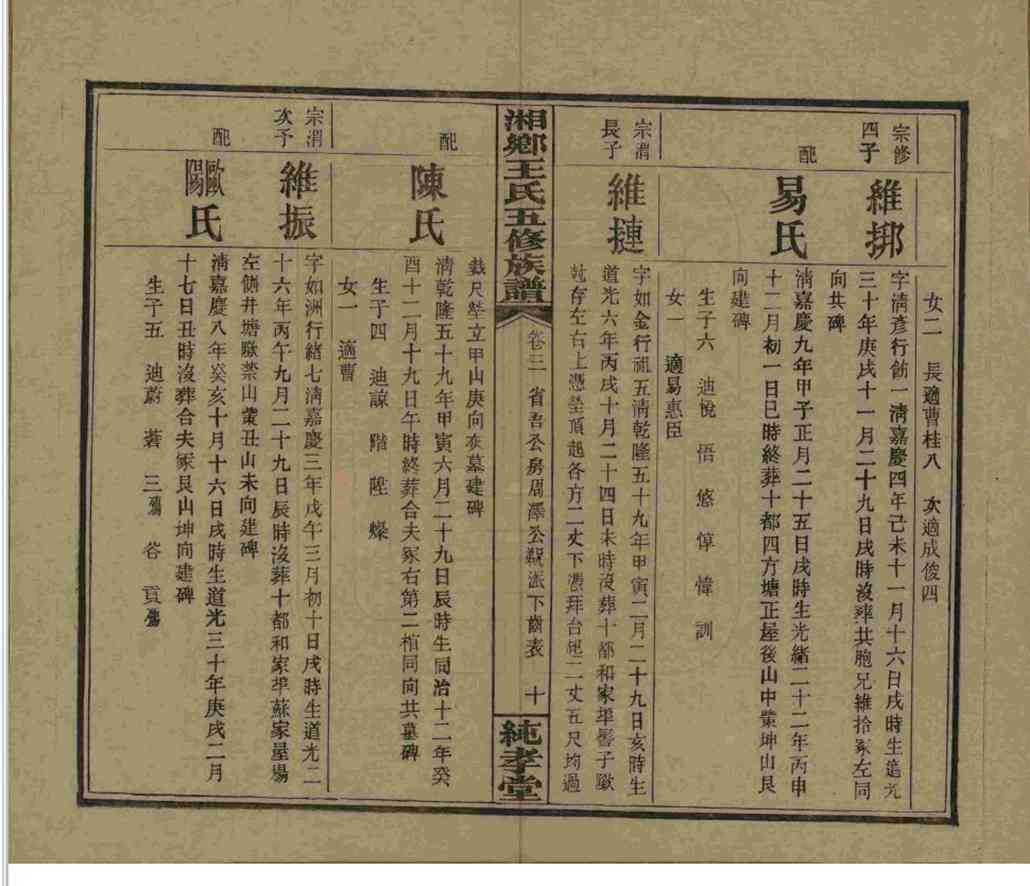 女二 長適曹桂八 次適成俊四
宗修
四子
維挷
字淸彥行飭一淸嘉慶四年己未十一月十六日戌時生道光
三十年庚戌十一月二十九日戌時沒葬共胞兄維拾冢左同
向共碑
配
易氏
淸嘉慶九年甲子正月二十五日戌時生光緒二十二年丙申
十二月初一日巳時終葬十都四方塘正屋後山中塋坤山艮
向建碑
生子六 迪悅 悟 悠 惇 愇 訓
女一 適易惠臣
宗渭
長子
維摙
字如金行祖五淸乾隆五十九年甲寅二月二十九日亥時生
道光六年丙戌十月二十四日未時沒葬十都和家埠子
存左右上憑塋頂起各方二丈下憑拜台起二丈五尺均過
湘鄉王氏五修族譜
卷三 省吾公房周澤公派下齒表 十
純孝堂
裁尺塋立甲山庚向在墓建碑
配
陳氏
淸乾隆五十九年甲寅六月二十九日辰時生同治十二年癸
酉十二月十九日午時終葬合夫冢右第二棺同向共墓碑
生子四 迪諒 階 陞 燦
女一 適曹
宗渭
次子
維振
字如洲行緒七淸嘉慶三年戊午三月初十日戌時生道光二
十六年丙午九月二十九日辰時沒葬十都和家埠蘇家屋場
左側井塘禁山塋丑山未向建碑
配
歐陽氏
淸嘉慶八年癸亥十月十六日戌時生道光三十年庚戌二月
十七日丑時沒葬合夫冢艮山坤向建碑
生子五 迪蔚 著 三殤 谷 貢殤